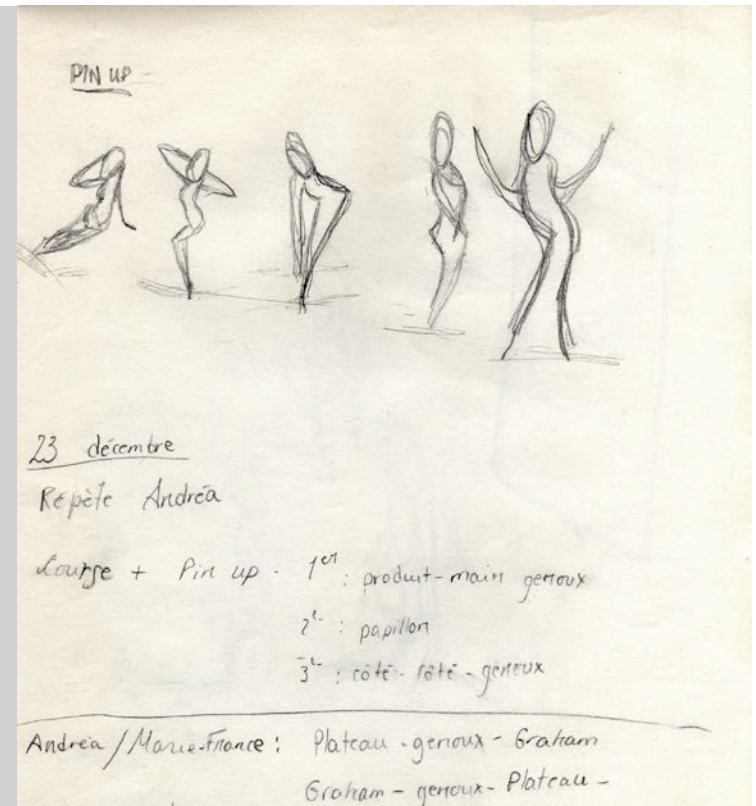 PIN UP -
23 décembre
Répète Andréa
Course + Pin up - 1er : produit-main genoux
2e- : papillon
3e- : côté-côté-genoux
Andréa / Marie-France : Plateau - genoux - Graham
Graham - genoux - Plateau -